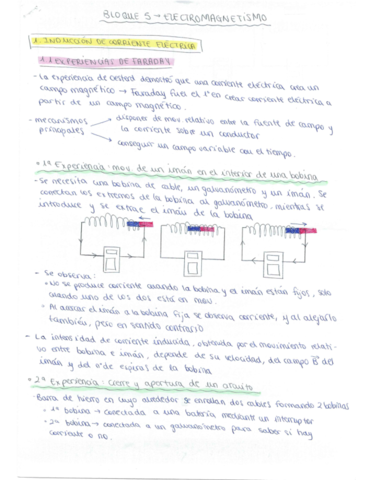 BLOQUE 5 → ELECTROMAGNETISMO
1. INDUCCIÓN DE CORRIENTE ELÉCTRICA
1.1 EXPERIENCIAS DE FARADAY
- La experiencia de Oested demostró que una corriente eléctrica crea un
campo magnético → Faraday fue el 1º en crear corriente eléctrica a
partir de un campo magnético.
- mecanismos principales → disponer de mov relativo entre la fuente de campo y
la corriente sobre un conductor
→ conseguir un campo variable con el tiempo.
• 1ª Experiencia: mov. de un imán en el interior de una bobina
- Se necesita una bobina de cable, un galvanómetro y un imán. Se
conectan los extremos de la bobina al galvanómetro, mientras se
introduce y se extrae el imán de la bobina
- Se observa:
• No se produce corriente cuando la bobina y el imán están fijos, solo
cuando uno de los dos está en mov.
• Al acercar el imán a la bobina fija se observa corriente, y al alejarlo
también, pero en sentido contrario
- La intensidad de corriente inducida, obtenida por el movimiento relati-
vo entre bobina e imán, depende de su velocidad, del campo B del
imán y del nº de espiras de la bobina
• 2ª Experiencia: cierre y apertura de un circuito
Barra de hierro en cuyo alrededor se enrollan dos cables formando 2 bobinas
• 1ª bobina → conectada a una batería mediante un interruptor
• 2ª bobina → conectada a un galvanómetro para saber si hay
corriente o no.